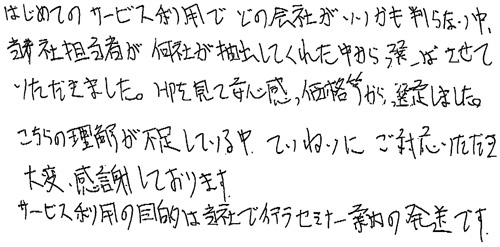 はじめてのサービス利用で どの会社がいいかも判らない中、
弊社担当者が 何社か抽出してくれた中から選ばさせて
いただきました。HPを見て安心感、価格等から、選定しました。
こちらの理解が不足している中 ていねいに ご対応いただき
大変、感謝しております
サービス利用の目的は当社で行うセミナー案内の発送です。